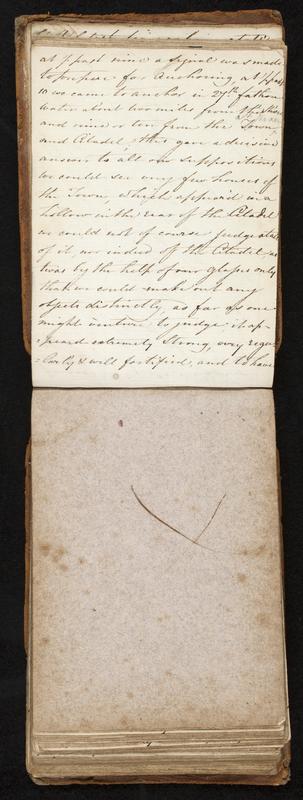 at ½ past nine a signal was made
to prepare for Anchoring, at ½ past
10 we came to anchor in 27th fathom
water about two miles from the shore
and nine or ten from the Town
and Citadel, this gave a decisive
answer to all our suppositions
we could see very few houses of
the Town, which appear'd in a
hollow in the rear of the Citadel
we could not of course judge
of it, nor indeed of the Citadel as
twas by the help of our glasses only
that we could make out any
objects distinctly, as far as one
might venture to judge it ap-
=peared extremely strong, very regu-
=larly & well fortified, and to have